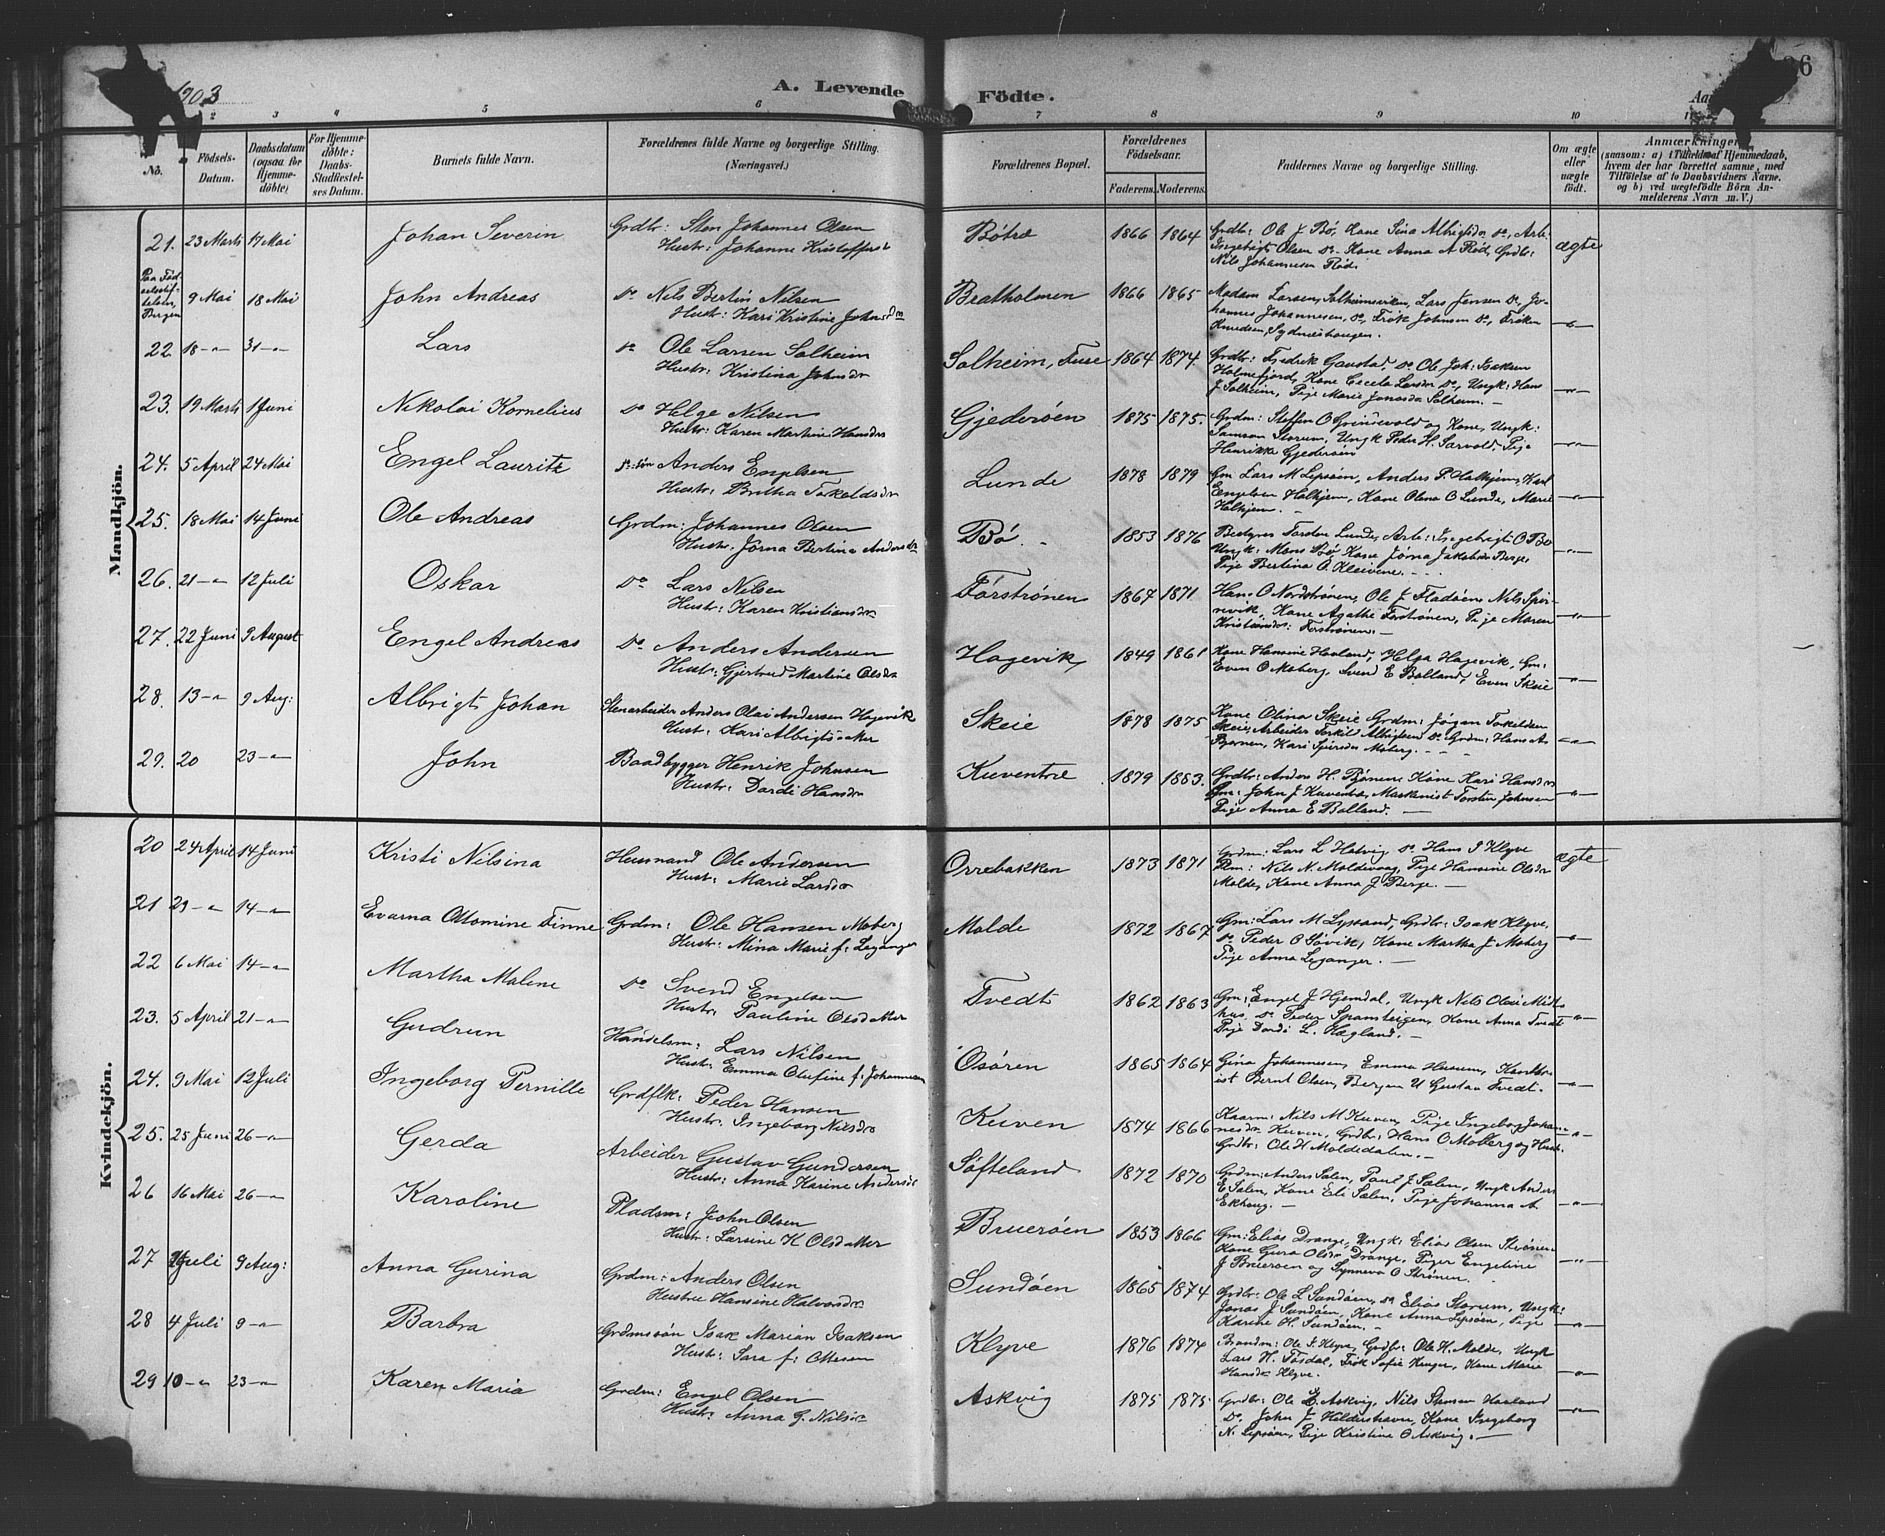 1903
A. Levende Födte.
26
2 3 4 5 6 7 8 9 10 11
No.
Födsels-Datum.
Daabsdatum (ogsaa for Hjemmedöbte)
For Hjemmedöbte: Daabs-Stadfæstelses Datum.
Barnets fulde Navn.
Forældrenes fulde Navne og borgerlige Stilling. (Næringsvei.)
Forældrenes Bopæl.
Forældrenes Födselsaar.
Faderens. Moderens.
Faddernes Navne og borgerlige Stilling.
Om ægte eller uægte födt.
Anmærkninger
(saasom: a) i Tilfælde af Hjemmedaab, hvem der har forrettet samme, med Tilföielse af to Daabsvidners Navne, og b) ved uægtefödte Börn Anmelderens Navn m. V.)
Mandkjön.
21. 23 Marts 17 Mai Johan Severin Grdbr: Sten Johannes Olsen
Hustr: Johanne Kristoffers
Bötræ 1866 1864 Grdbr: Ole J Bø, Kone Sina Albrigtsdr, Arb: Ingebrigt Olsen, Kone Anna A Röd, Grdbr: Nils Johannesen Röd. ægte
Paa Fødselsstiftelsen, Bergen 9 Mai 18 Mai John Andreas Do Nils Bertin Nilsen
Hustr: Kari Kristine Johnsdr
Bratholmen 1866 1865 Madam Larsen, Solheimsviken, Lars Jensen Do, Johannes Johannesen, Do, Frøk Johnsen Do, Frøken Knudsen, Sydneshaugen. -"-
22 18 -"- 31 -"- Lars Do Ole Larsen Solheim
Hustr: Kristina Johnsdr
Solheim, Fuse 1864 1874 Grdbr: Fredrik Gaustad, Do Ole Joh: Isaksen Holmefjord, Kone Cecela Larsdr Do, Ungk: Hans J Solheim, Pige Marie Jonasdr Solheim. -"-
23. 19 Marts 1 Juni Nikolai Kornelius Do Helge Nilsen
Hustr: Karen Martine Hansdr
Gjederöen 1875 1875. Grdm: Steffen O Grindevold og Kone, Ungk: Samson Storum, Ungk Peder H. Sarvold, Pige Henrikke Gjederöen -"-
24. 5 April 24 Mai Engel Lauritz Do: sön Anders Engelsen
Hustr: Britha Torkeldsdr
Lunde 1878 1879 Gm Lars M Lepsöen, Anders P. Halhjem, Karl Engelsen Halhjem, Kone Olena O Lunde, Marie Halhjem. -"-
25. 18 Mai 14 Juni Ole Andreas Grdm: Johannes Olsen
Hustr: Jorna Bertina Andersdr
Bö 1853 1876 Bestyrer Torsten Lunde, Arb: Ingebrigt O Bø Ungk: Mons Bø, Kone Jörna Jakobsdr Berge, Pige Bertina O. Kleivene. -"-
26. 21 -"- 12 Juli Oskar Do Lars Nilsen
Hustr: Karen Kristiansdr
Förströnen 1867 1871 Hans O Nordströnen, Ole J Fladöen, Nils Spjørnevik, Kone Agathe Forströnen, Pige Maren Kristiansdr: Forströnen. -"-
27. 22 Juni 9 August Engel Andreas Do Anders Andersen
Hustr: Gjertrud Martine Olsdr
Hagevik 1849 1861 Kone Hansine Haaland, Helga Hagevik, Gm: Even O Moberg, Svend E Bolland, Even Skeie -"-
28. 13 -"- 9 Aug: Albrigt Johan Stenarbeider Anders Olai Andersen Hagevik
Hust: Kari Albrigtsdatter
Skeie 1878 1875 Kone Olina Skeie, Grdm: Jörgen Torkeldsen Skeie, Arbeider Torkil Albrigtsen Do, Grdm: Hans As Björnen, Kari Sjursdr Moberg. -"-
29. 20 23 -"- John Baadbygger Henrik Johnsen
Hustr: Dordi Hansdr
Kuventræ 1879 1883. Grdbr: Anders H. Björnen, Kone Kari Hansdr Gm: John J Kuventræ, Maskinist Torsten Johnsen Pige Anna E Bolland. -"-
Kvindekjön.
20 24 April 14 Juni Kristi Nilsina Husmand Ole Andersen
Hust: Marie Larsdr
Orrebakken 1873 1871 Grdm: Lars L Hatvig, Do Hans J Klyve Plm: Nils N. Moldevaag, Pige Hansine Olsdr Molde, Kone Anna J Berge. - ægte
21 29 -"- 14 -"- Evarna Ottomine Finne Grdm: Ole Hansen Moberg
Hustr: Mina Marie f: Leganger
Molde 1872 1867 Gm: Lars M Lysand, Grdbr: Isak Klyve, Do Peder O Søvik, Kone Martha J Moberg Pige Anna Leganger. -"-
22 6 Mai 14 -"- Martha Malene Do Svend Engelsen
Hustr: Pauline Olsdatter
Tvedt 1862 1863 Gm: Engel J Hjemdal, Ungk Nils Olai Midthus, Do Peder Spansteigen, Kone Anna Tvedt Pige Dordi L. Hægland. -"-
23. 5 April 21 -"- Gudrun Handelsm: Lars Nilsen
Hustr: Emma Olufine f: Johannesen
Osören 1865 1864 Gina Johannesen, Emma Husum, Kontorist Bernt Olsen, Bergen, U Gustav Tvedt. -"-
24. 9 Mai 12 Juli Ingeborg Pernille Grdflk: Peder Hansen
Hustr. Ingeborg Nilsdr
Kuven 1874 1866 Kaarm: Nils M Kuven, Pige Ingeborg Johannesdr. Kuven, Grdbr: Hans O Moberg og Hustr. Grdbr: Ole H Moldedalen. -"-
25. 25 Juni 26 -"- Gerda Arbeider Gustav Gundersen
Hustr: Anna Karine Andersdr
Söfteland 1872 1870 Grdm: Anders Salen, Paul J Salen, Ungk Anders E Salen, Kone Eli Salen, Pige Johanna A. Ekhaug. -"-
26 16 Mai 26 -"- Karoline Pladsm: John Olsen
Hustr: Larsine K Olsdatter
Brueröen 1853 1866 Gm: Elias Drange, Ungk: Elias Olsen Strönen Kone Gura Olsdr Drange, Piger Engeline J Brueröen og Synneva O Strönen. -"-
27 Juli 9 Aug: Anna Gurina Grdm: Anders Olsen
Hustru Hansine Halvorsdr
Sundöen 1865 1874 Grdbr: Ole L Sundöen, Do Elias Storum, Ungk: Jonas J Sundöen, Kone Anna Lepsöen, Pige Karine H. Sundöen. -"-
28 4 Juli 9 -"- Barbra Grdmssön Isak Marian Isaksen
Hustr: Sara f: Ottesen
Klyve 1876 1874 Brandm: Ole J. Klyve, Grdbr: Ole H. Molde, Ungk Lars H. Tøsdal, Frøk Sofie Kruger, Kone Marie Hansdr Klyve. -"-
29 10 -"- 23 -"- Karen Maria Grdm: Engel Olsen
Hustr: Anna G. Nilsdr
Askvig 1875 1875 Grdbr: Ole E. Askvig, Nils Stensen Haaland Do. John J. Hildershavn, Kone Ingeborg N. Lepsöen, Pige Kristine O Askvig. -"-